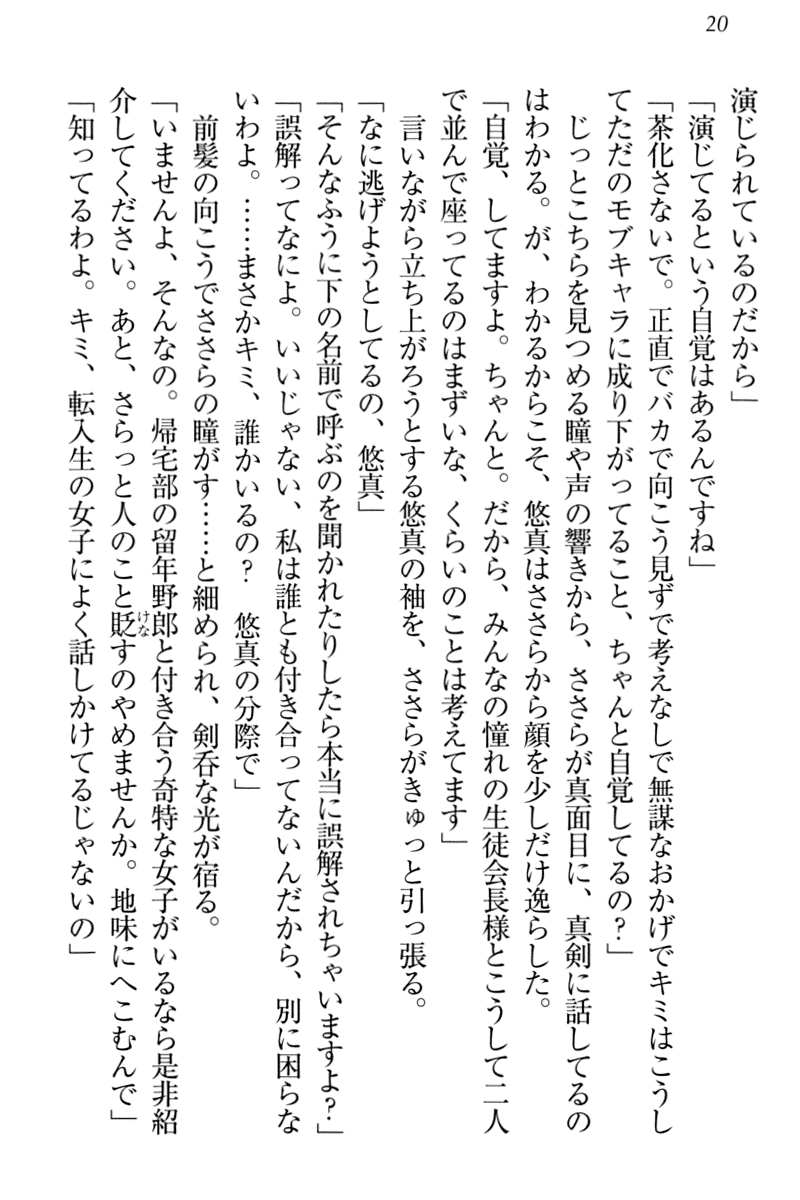 20
演じられているのだから」
「演じてるという自覚はあるんですね」
「茶化さないで。正直でバカで向こう見ずで考えなしで無謀なおかげでキミはこうし
てただのモブキャラに成り下がってること、ちゃんと自覚してるの？」
　じっとこちらを見つめる瞳や声の響きから、ささらが真面目に、真剣に話してるの
はわかる。が、わかるからこそ、悠真はささらから顔を少しだけ逸らした。
「自覚、してますよ。ちゃんと。だから、みんなの憧れの生徒会長様とこうして二人
で並んで座ってるのはまずいな、くらいのことは考えてます」
　言いながら立ち上がろうとする悠真の袖を、ささらがきゅっと引っ張る。
「なに逃げようとしてるの、悠真」
「そんなふうに下の名前で呼ぶのを聞かれたりしたら本当に誤解されちゃいますよ？」
「誤解ってなによ。いいじゃない、私は誰とも付き合ってないんだから、別に困らな
いわよ。……まさかキミ、誰かいるの？　悠真の分際で」
　前髪の向こうでささらの瞳がす……と細められ、剣呑な光が宿る。
「いませんよ、そんなの。帰宅部の留年野郎と付き合う奇特な女子がいるなら是非紹
介してください。あと、さらっと人のこと貶すのやめませんか。地味にへこむんで」
けな
「知ってるわよ。キミ、転入生の女子によく話しかけてるじゃないの」